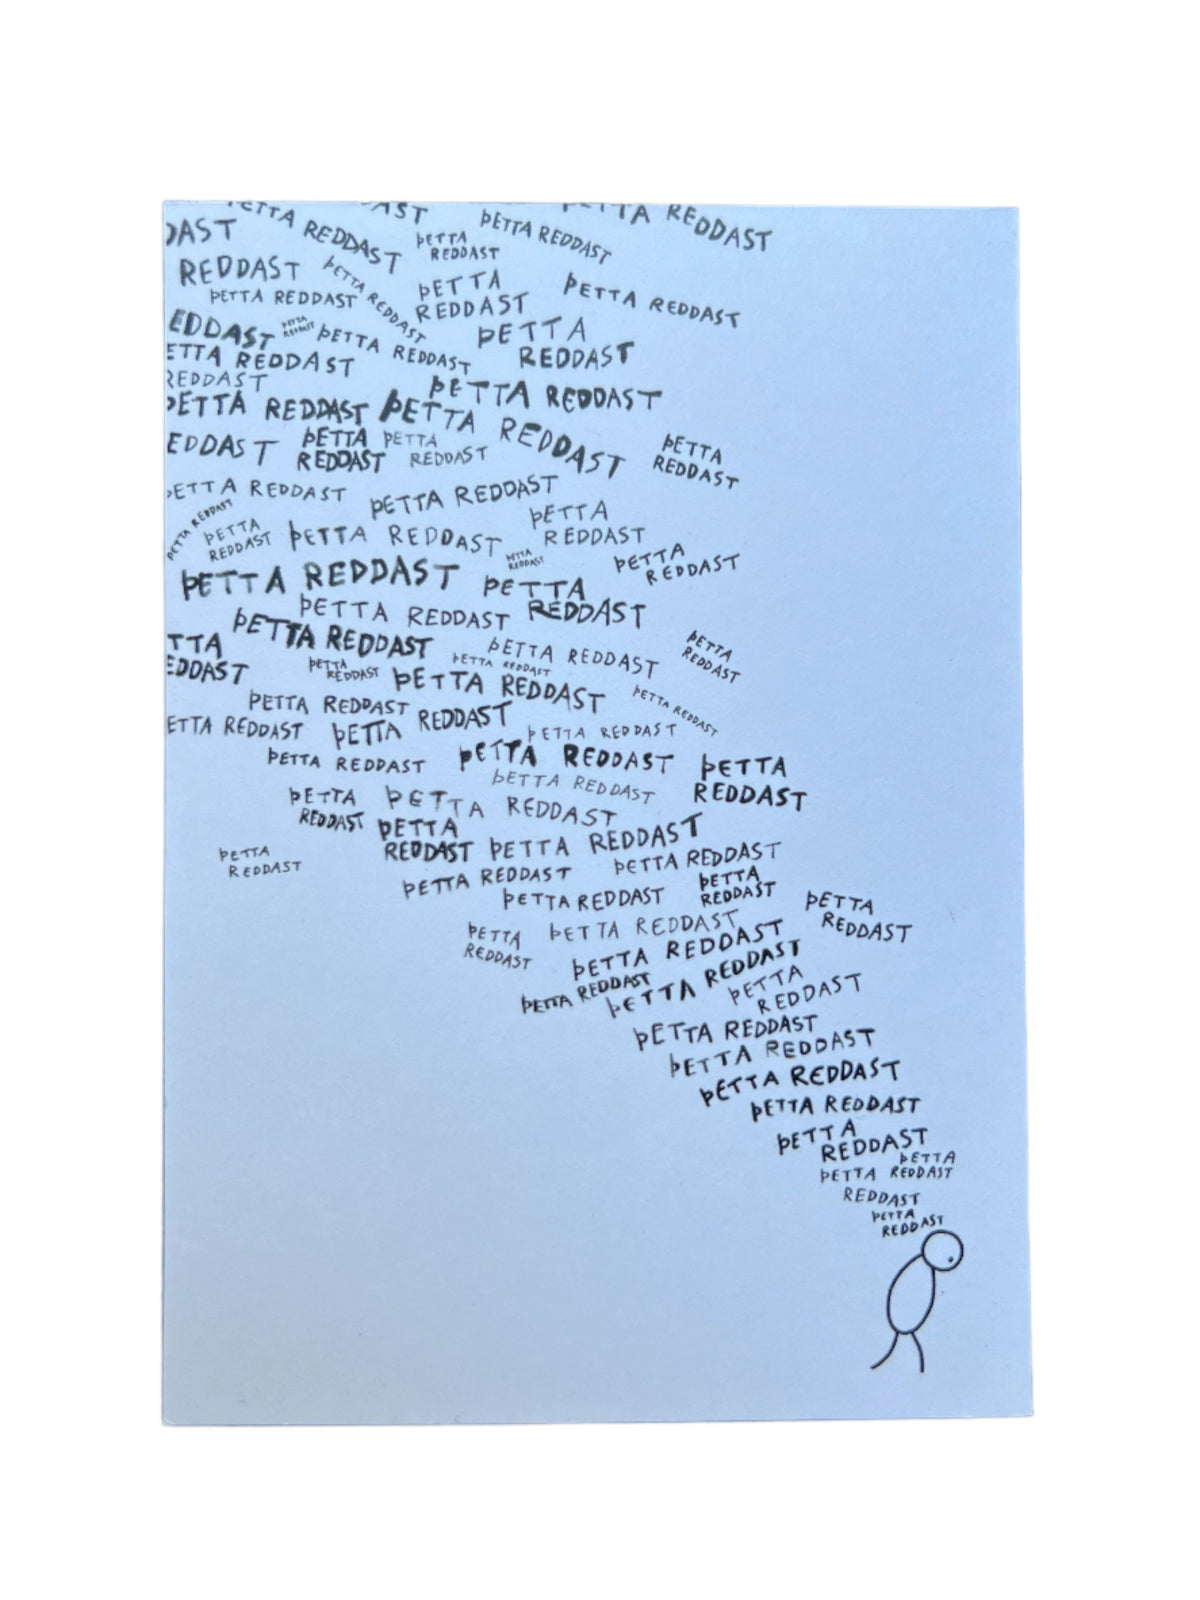 ÞETTA REDDAST
AST
ÞETTA REDDAST
ETTA REDDAST
DAST
ÞETTA
REDDAST
REDDAST
ÞETTA REDDAST
ÞETTA REDDAST
ÞETTA
REDDAST
ÞETTA REDDAST
EDDAST
ÞETTA
REDDAST
ÞETTA REDDAST
ÞETTA
REDDAST
ETTA REDDAST
REDDAST
ÞETTA REDDAST
ÞETTA REDDAST
ÞETTA REDDAST
EDDAST
ÞETTA
REDDAST
ÞETTA
REDDAST
ÞETTA
REDDAST
ÞETTA REDDAST
ÞETTA REDDAST
ÞETTA REDDAST
ÞETTA
REDDAST
ÞETTA REDDAST
ÞETTA
REDDAST
ÞETTA
REDDAST
ÞETTA
REDDAST
ÞETTA REDDAST
ÞETTA
REDDAST
ÞETTA REDDAST
ÞETTA REDDAST
TTA
EDDAST
ÞETTA REDDAST
ÞETTA
REDDAST
ÞETTA
REDDAST
ÞETTA REDDAST
ÞETTA REDDAST
ÞETTA REDDAST
ÞETTA REDDAST
ETTA REDDAST
ÞETTA REDDAST
ÞETTA REDDAST
ÞETTA REDDAST
ÞETTA REDDAST
ÞETTA
REDDAST
ÞETTA REDDAST
ÞETTA
REDDAST
ÞETTA REDDAST
ÞETTA
REDDAST
ÞETTA REDDAST
ÞETTA
REDDAST
ÞETTA REDDAST
ÞETTA REDDAST
ÞETTA REDDAST
ÞETTA
REDDAST
ÞETTA
REDDAST
ÞETTA
REDDAST
ÞETTA REDDAST
ÞETTA REDDAST
ÞETTA REDDAST
ÞETTA REDDAST
ÞETTA
REDDAST
ÞETTA REDDAST
ÞETTA REDDAST
ÞETTA REDDAST
ÞETTA REDDAST
ÞETTA
REDDAST
ÞETTA
ÞETTA REDDAST
REDDAST
ÞETTA
REDDAST